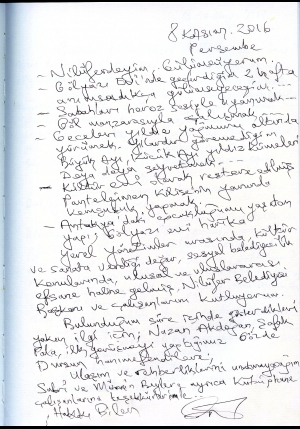 8 KASIM. 2016
Perşembe
- Nilüferdeyim.. Gülümsüyorum.
- Gölyazı Evi'nde geçirdiğim 2 hafta
anımsadıkça gülümseyeceğim...
- Sabahları horoz sesiyle uyanmak...
- Göl manzarasıyla
- Geceleri yıldız yağmuru altında
yürümek. Yıllardır göremediğim
Büyük Ayı, Küçük Ayı yıldız kümeleri
Doya doya seyretmek...
- Kültür evi olarak restore edilmiş
Panteleimon Kilisenin yanında
komşuluk yapmak
- Antakya'daki çocukluğumu yaşatan
yapı, Gölyazı evi harika
Yerel yönetimler arasında kültür
ve sanata verdiği değer, sosyal belediyecilik
konularında, ulusal ve uluslararası
efsane haline gelmiş, Nilüfer Belediyesi
Başkanı ve çalışanlarını kutluyorum.
Bulunduğum süre içinde gösterdikleri
yakın ilgi için; Nazan Akdoğan, Şafak
Pala, ilk yaptığımız Gözde
Dursun hanımefendilere,
Ulaşım ve rehberliklerini unutmayacağım
Sabri ve Beylere ayrıca kütüphane
çalışanlarına teşekkürlerimle...